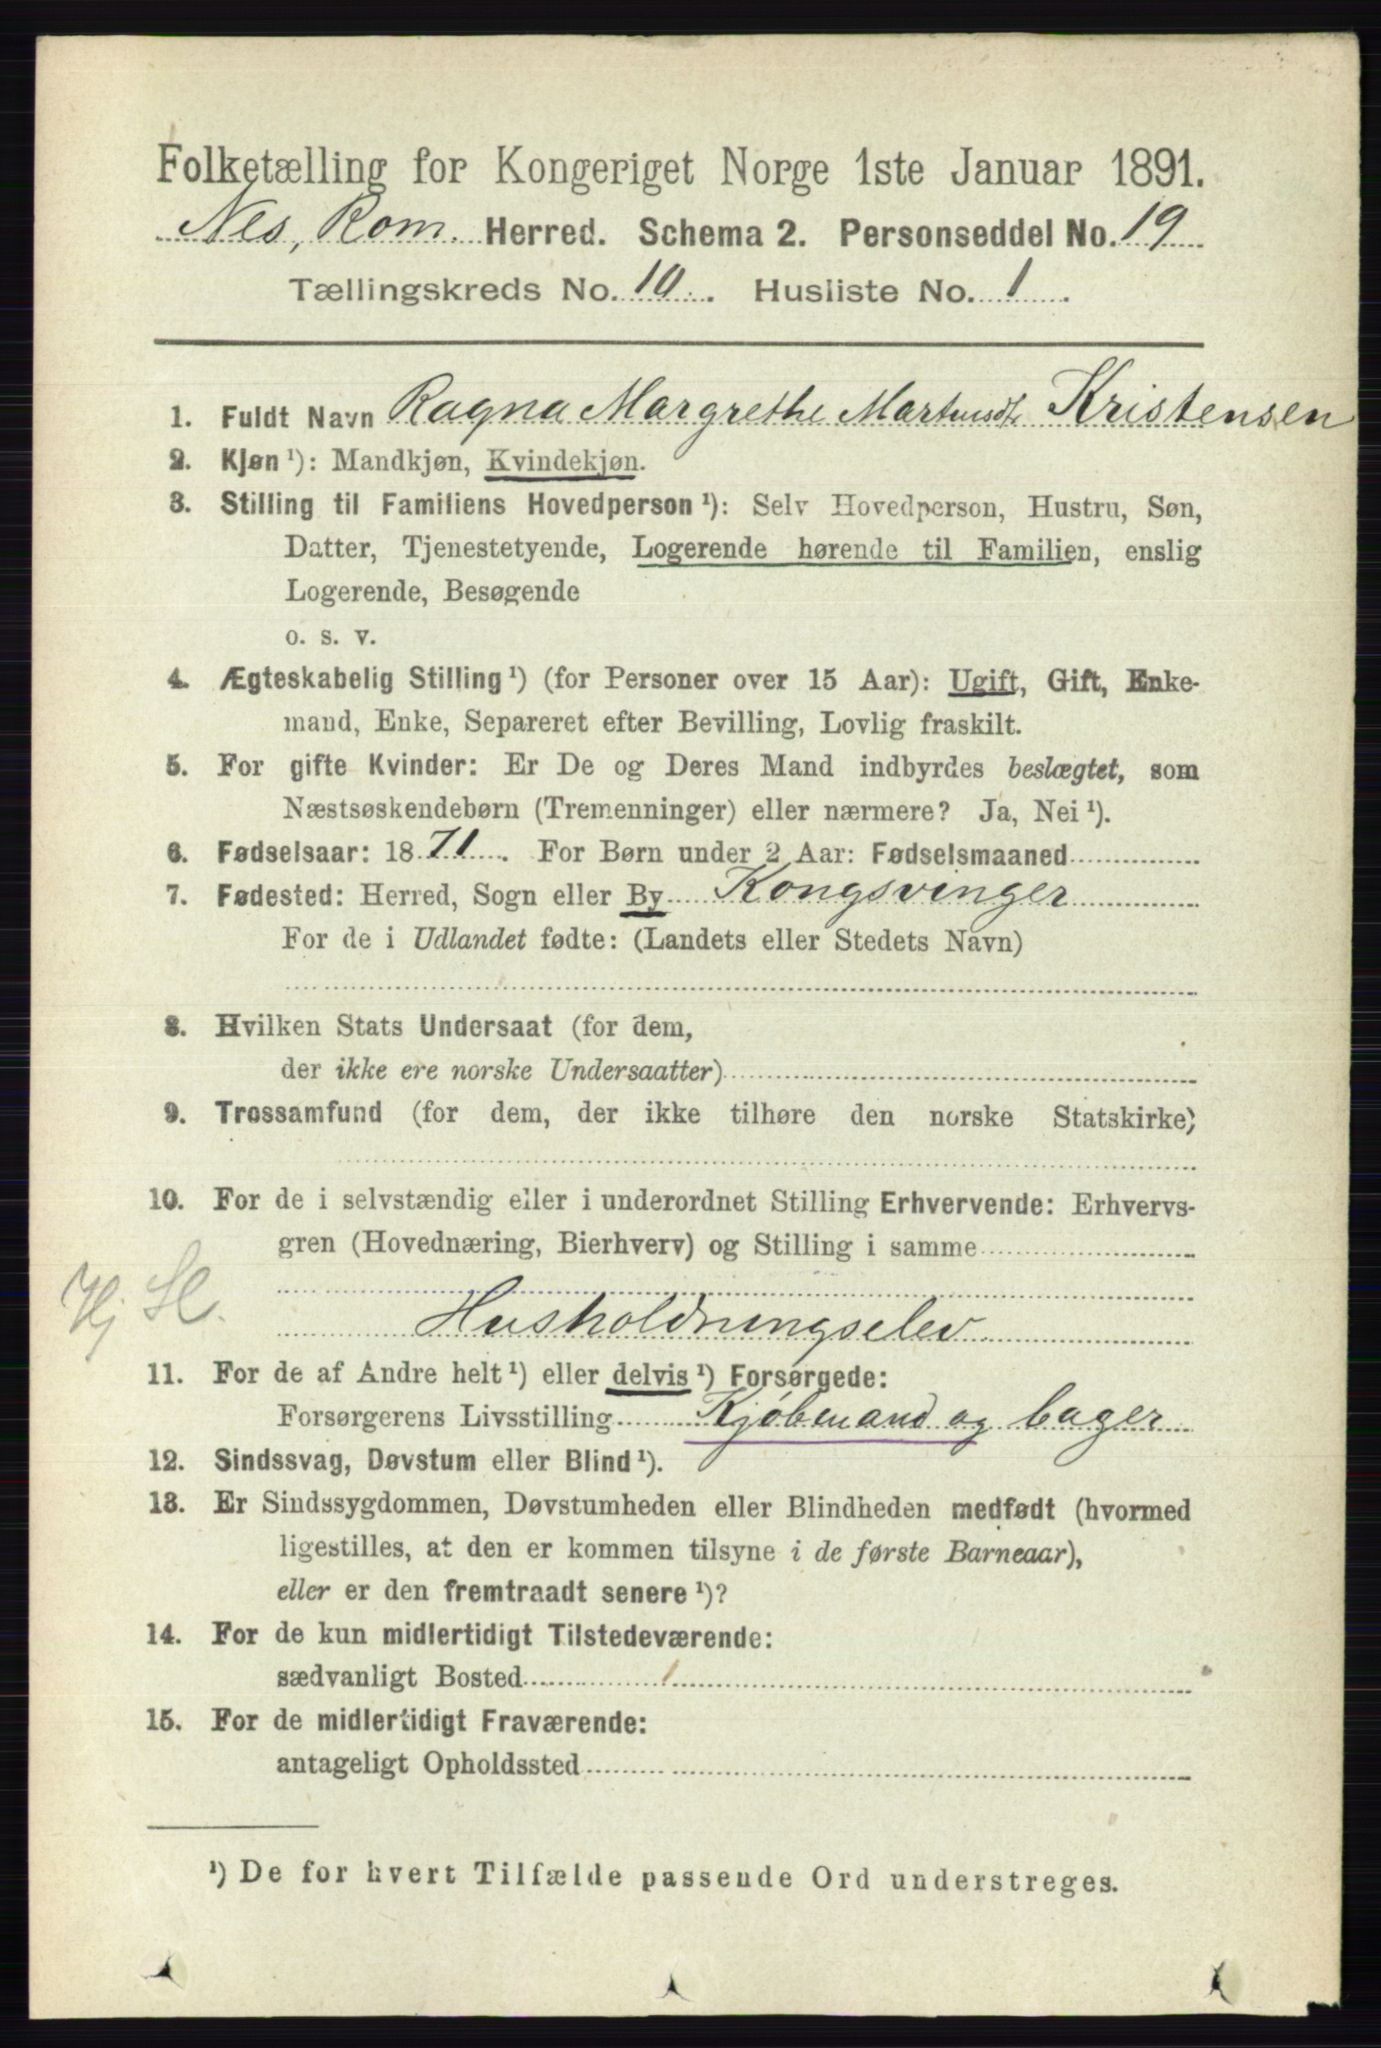 Folketælling for Kongeriget Norge 1ste Januar 1891.
Nes, Rom. Herred. Schema 2. Personseddel No. 19
Tællingskreds No. 10. Husliste No. 1.
1. Fuldt Navn Ragna Margrethe Martinsdt. Kristensen
2. Kjøn ¹): Mandkjøn, Kvindekjøn.
3. Stilling til Familiens Hovedperson ¹): Selv Hovedperson, Hustru, Søn,
Datter, Tjenestetyende, Logerende hørende til Familien, enslig
Logerende, Besøgende
o. s. v.
4. Ægteskabelig Stilling ¹) (for Personer over 15 Aar): Ugift, Gift, Enke-
mand, Enke, Separeret efter Bevilling, Lovlig fraskilt.
5. For gifte Kvinder: Er De og Deres Mand indbyrdes beslægtet, som
Næstsøskendebørn (Tremenninger) eller nærmere? Ja, Nei ¹).
6. Fødselsaar: 1871. For Børn under 2 Aar: Fødselsmaaned
7. Fødested: Herred, Sogn eller By Kongsvinger
For de i Udlandet fødte: (Landets eller Stedets Navn)
8. Hvilken Stats Undersaat (for dem,
der ikke ere norske Undersaatter)
9. Trossamfund (for dem, der ikke tilhøre den norske Statskirke)
10. For de i selvstændig eller i underordnet Stilling Erhvervende: Erhvervs-
gren (Hovednæring, Bierhverv) og Stilling i samme
Husholdningselev.
11. For de af Andre helt ¹) eller delvis ¹) Forsørgede:
Forsørgerens Livsstilling Kjøbmand og bager
12. Sindssvag, Døvstum eller Blind ¹).
13. Er Sindssygdommen, Døvstumheden eller Blindheden medfødt (hvormed
ligestilles, at den er kommen tilsyne i de første Barneaar),
eller er den fremtraadt senere ¹)?
14. For de kun midlertidigt Tilstedeværende:
sædvanligt Bosted
15. For de midlertidigt Fraværende:
antageligt Opholdssted
¹) De for hvert Tilfælde passende Ord understreges.